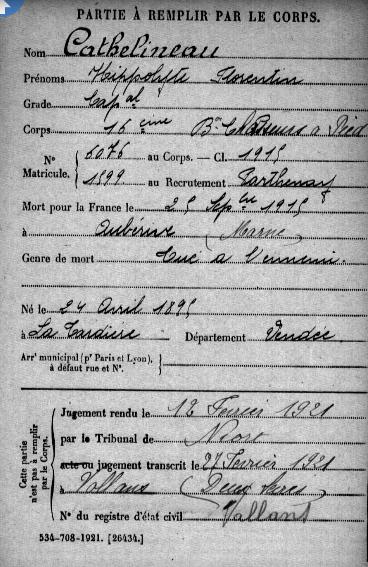 PARTIE À REMPLIR PAR LE CORPS.
Nom Cathelineau
Prénoms Hippolyte Florentin
Grade Capal
Corps 16ème Bon Chasseurs à Pied
N° Matricule. 6076 au Corps. — Cl. 1915
1599 au Recrutement Parthenay
Mort pour la France le 25 Sepbre 1915
à Aubérive (Marne)
Genre de mort Tué à l'ennemi.
Né le 24 Avril 1895
à La Tardière Département Vendée
Arrt municipal (pr Paris et Lyon), à défaut rue et N°.
Cette partie n'est pas à remplir par le Corps.
Jugement rendu le 12 Février 1921
par le Tribunal de Niort
acte ou jugement transcrit le 27 Février 1921
à Vallans (Deux Sèvres)
N° du registre d'état civil Vallans
534-708-1921. [26434.]